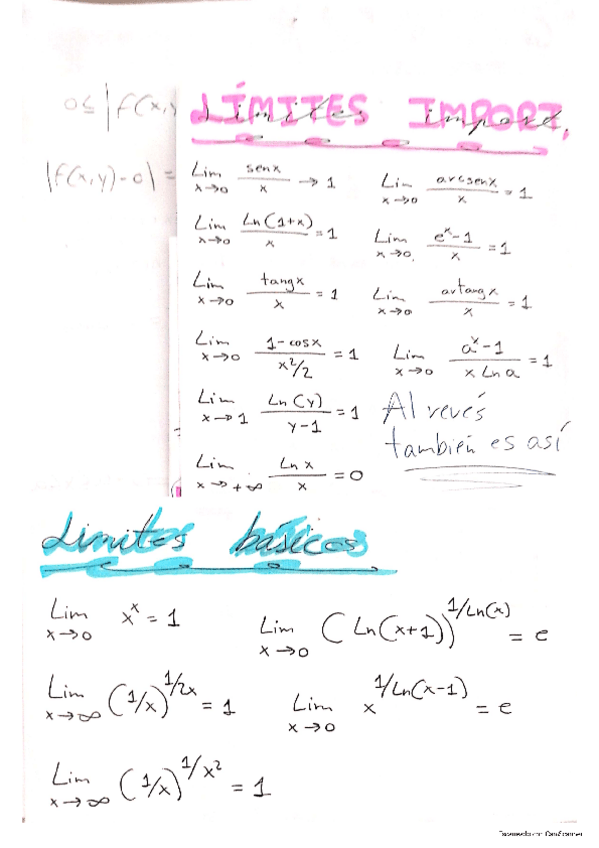 0≤ |f(x,y
LÍMITES IMPORT.
Límites import.
|f(x,y)-0| =
Lim x→0 senx/x → 1
Lim x→0 arcsenx/x = 1
Lim x→0 Ln(1+x)/x = 1
Lim x→0 e^x-1/x = 1
Lim x→0 tangx/x = 1
Lim x→0 artangx/x = 1
Lim x→0 1-cosx/x²/2 = 1
Lim x→0 a^x-1/x Ln a = 1
Lim x→1 Ln(y)/y-1 = 1
Al revés
también es así
Lim x→+∞ Ln x/x = 0
Limites básicos
Lim x→0 x^x = 1
Lim x→0 (Ln(x+1))^1/Ln(x) = e
Lim x→∞ (1/x)^1/2x = 1
Lim x→0 x^1/Ln(x-1) = e
Lim x→∞ (1/x)^1/x² = 1
Escaneado con CamScanner